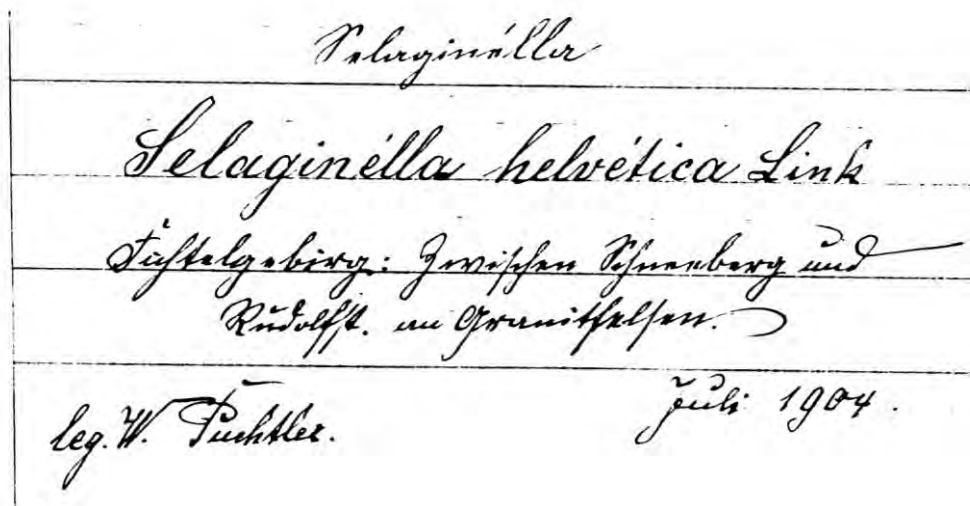 Selaginélla
Selaginélla helvética Link
Fichtelgebirg: Zwischen Schneeberg und
Rudolfst. an Granitfelsen.
leg. W. Puchtler. Juli 1904.